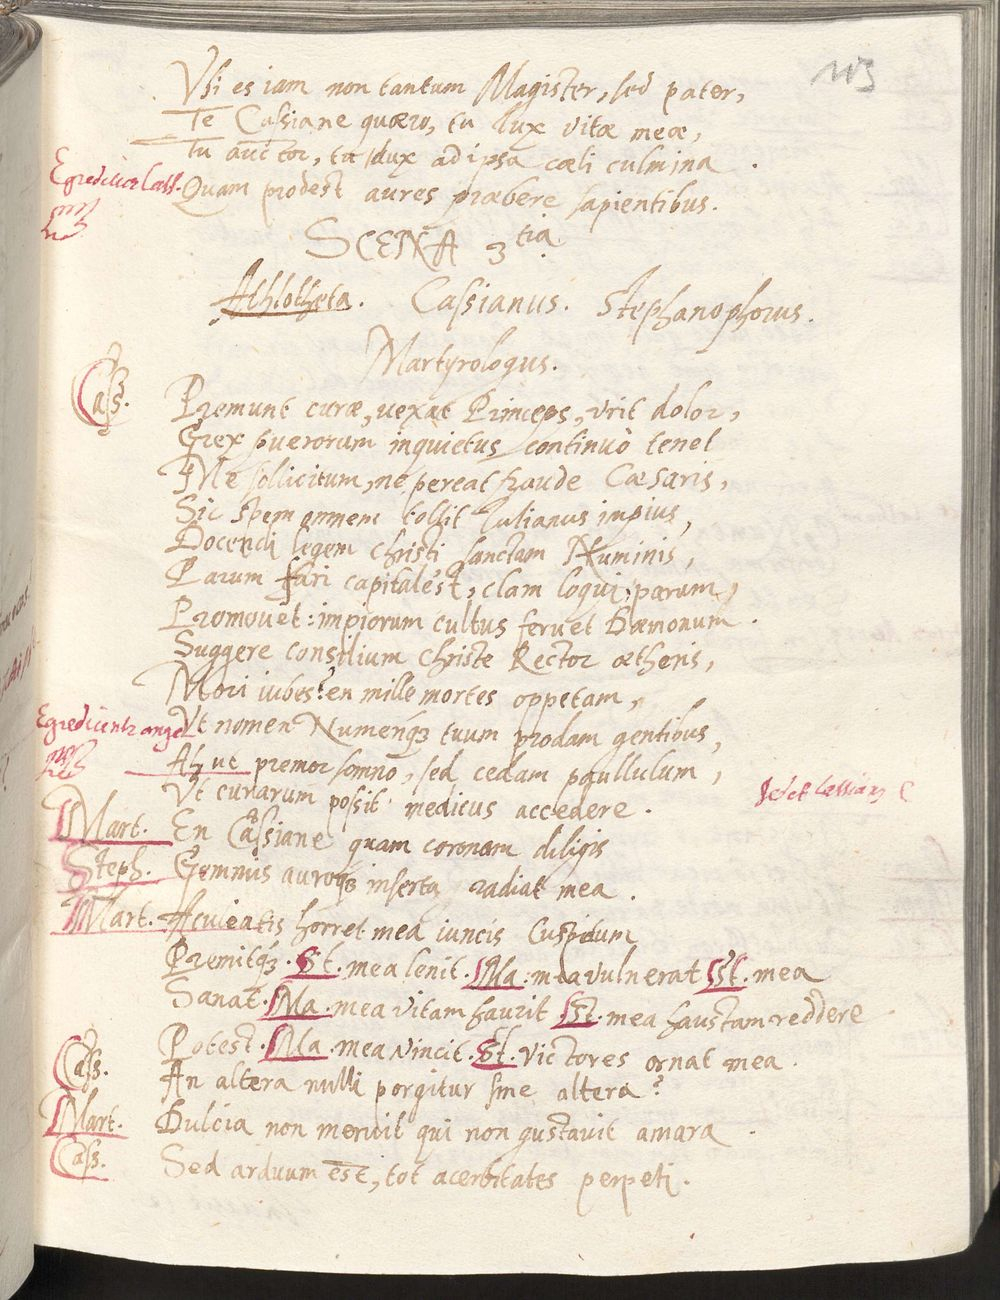 113
Vsi es iam non tantum Magister, sed pater,
Te Cassiane quæro, tu lux vitæ meæ,
Tu auctor, tu dux ad ipsa cæli culmina.
Egreditur Cass. Quam prodest aures præbere sapientibus.
SCENA 3tia.
Athlotheta. Cassianus. Stephanophorus.
Martyrologus.
Cass. Premunt curæ, uexat Princeps, vrit dolor,
Grex puerorum inquietus continuò tenet
Me sollicitum, ne pereat fraude Cæsaris,
Sic spem omnem tollit Iulianus impius,
Docendi legem Christi sanctam Numinis,
Parum fari capitale'st, clam loqui parum,
Promouet: impiorum cultus feruet Dæmonum.
Suggere consilium Christe Rector ætheris,
Mori iubes? en mille mortes oppetam,
Egredientr angeli Vt nomen Numenq́3 tuum prodam gentibus,
At ut premor somno, sed cedam paullulum,
Vt curarum possit medicus accedere.
Mart. En Cassiane quam coronam diligis
Steph. Gemmis auroq́3 inserta radiat mea.
Mart. Aculeatis horret mea iuncis Cuspidum
Premitq́3. St. mea lenit. Ma. mea vulnerat St. mea
Sanat. Ma. mea vitam haurit St. mea haustam reddere
Potest. Ma. mea vincit. St. victores ornat mea.
Cass. An altera nulli porgitur sine altera?
Mart. Dulcia non meruit qui non gustauit amara.
Cass. Sed arduum est, tot acerbitates perpeti.